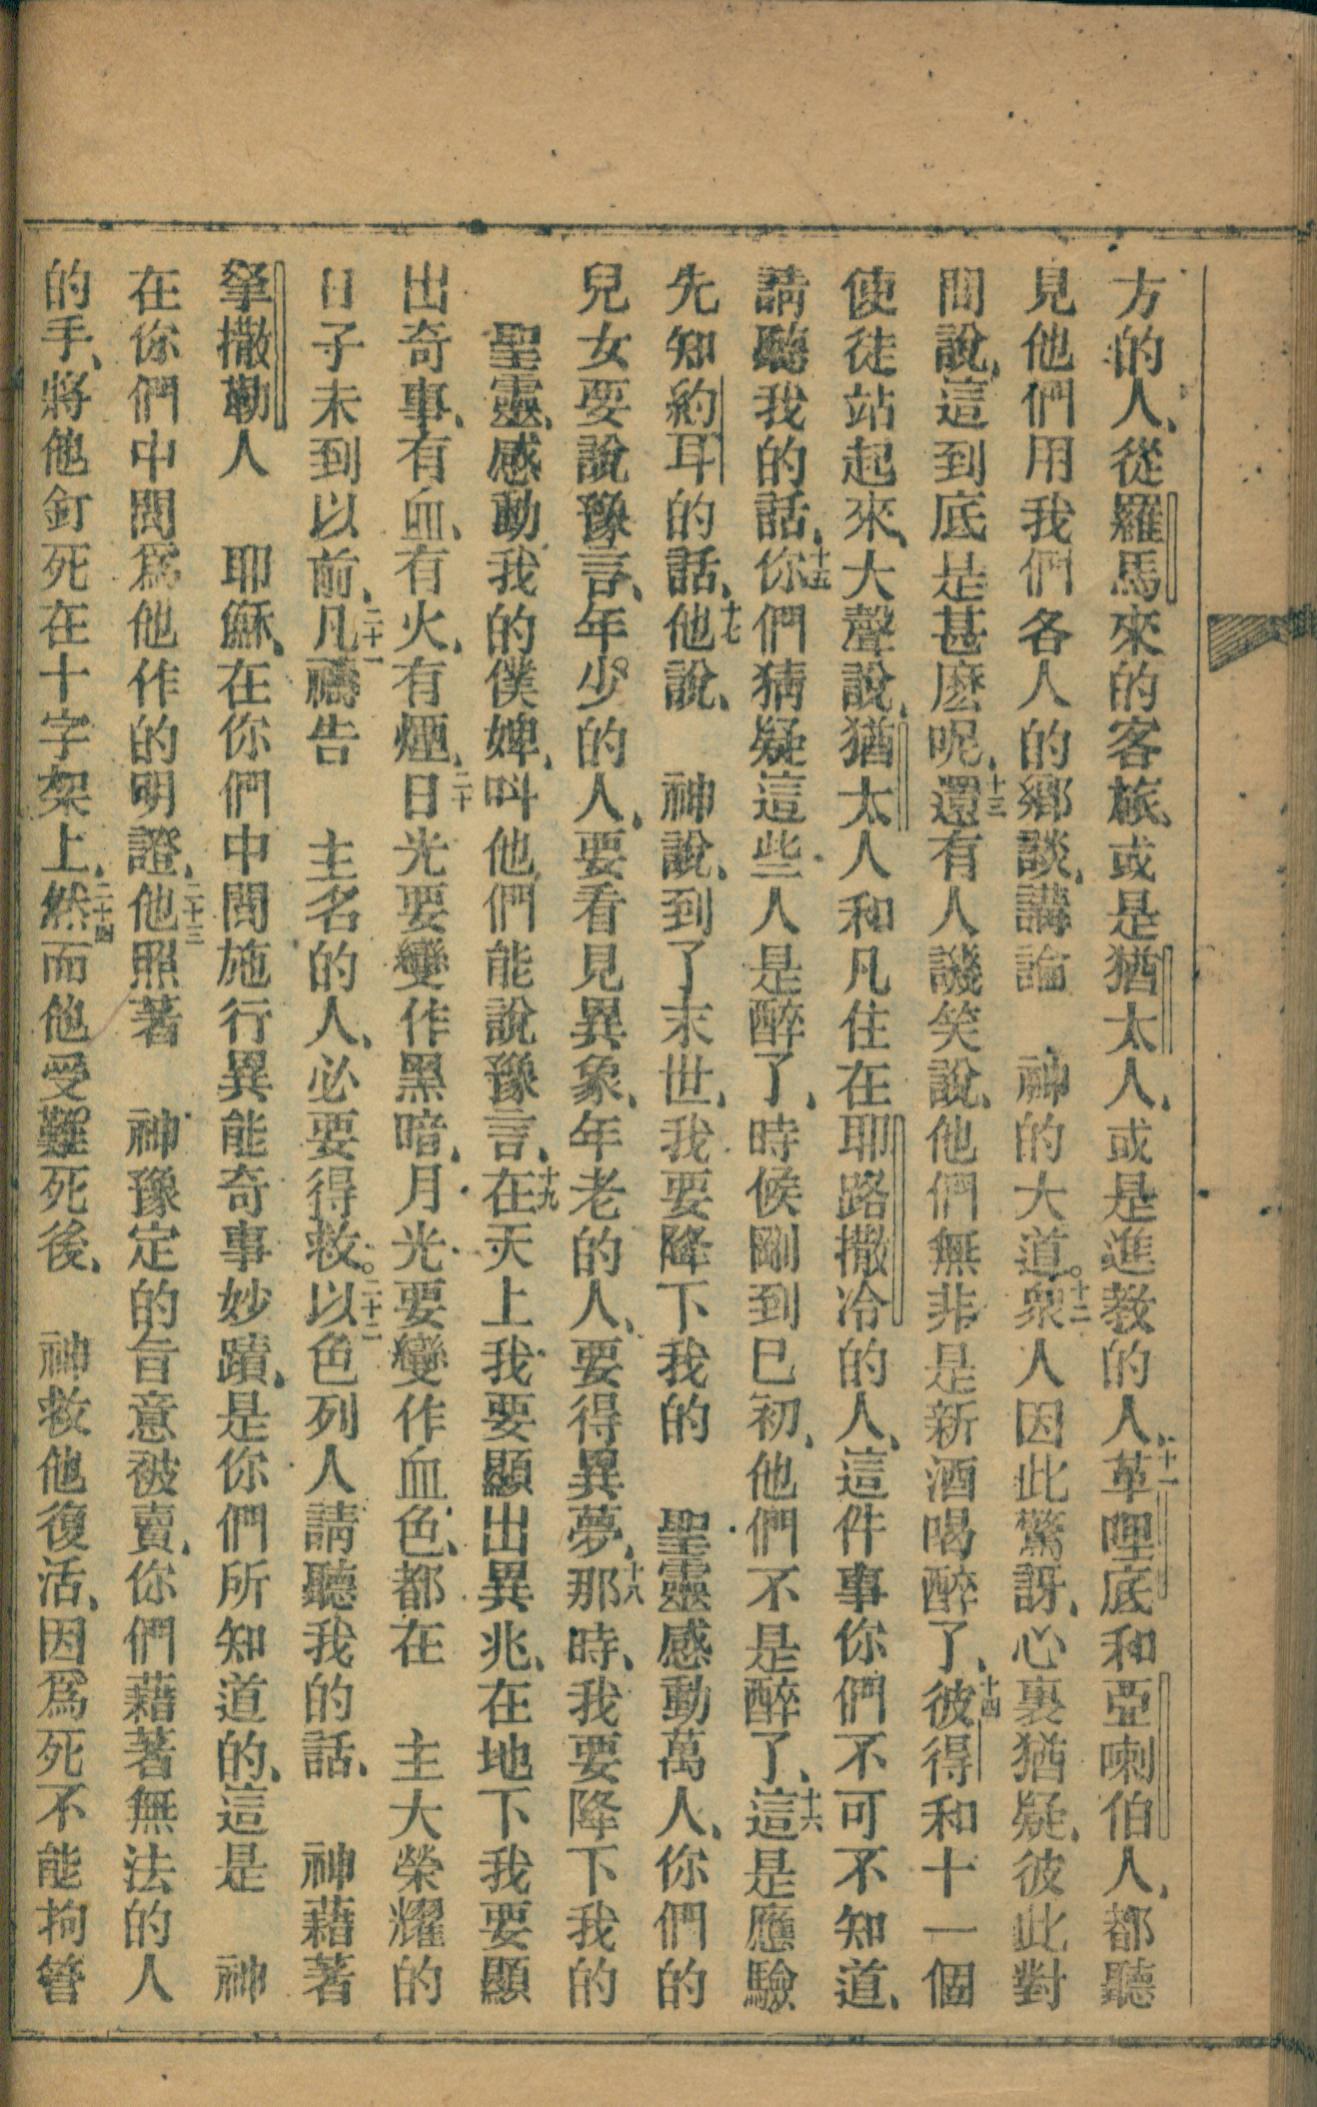 方的人、從羅馬來的客旅、或是猶太人、或是進教的人、十一革哩底和亞喇伯人、都聽
見他們用我們各人的鄉談、講論　神的大道。十二衆人因此驚訝、心裏猶疑、彼此對
問說、這到底是甚麽呢、十三還有人譏笑說、他們無非是新酒喝醉了、十四彼得和十一個
使徒站起來、大聲說、猶太人和凡住在耶路撒冷的人、這件事你們不可不知道、
請聽我的話、十五你們猜疑這些人是醉了、時候剛到巳初、他們不是醉了、十六這是應驗
先知約耳的話、十七他說、　神說、到了末世、我要降下我的　聖靈感動萬人、你們的
兒女要說豫言、年少的人、要看見異象、年老的人、要得異夢、十八那時、我要降下我的
　聖靈、感動我的僕婢、叫他們能說豫言、十九在天上我要顯出異兆、在地下我要顯
出奇事、有血、有火、有煙、二十日光要變作黑暗、月光要變作血色、都在　主大榮耀的
日子未到以前、二十一凡禱告　主名的人、必要得救。二十二以色列人請聽我的話、　神藉著
拏撒勒人　耶穌、在你們中間施行異能奇事妙蹟、是你們所知道的、這是　神
在你們中間爲他作的明證、二十三他照著　神豫定的旨意被賣、你們藉著無法的人
的手、將他釘死在十字架上、二十四然而他受難死後、　神救他復活、因爲死不能拘管